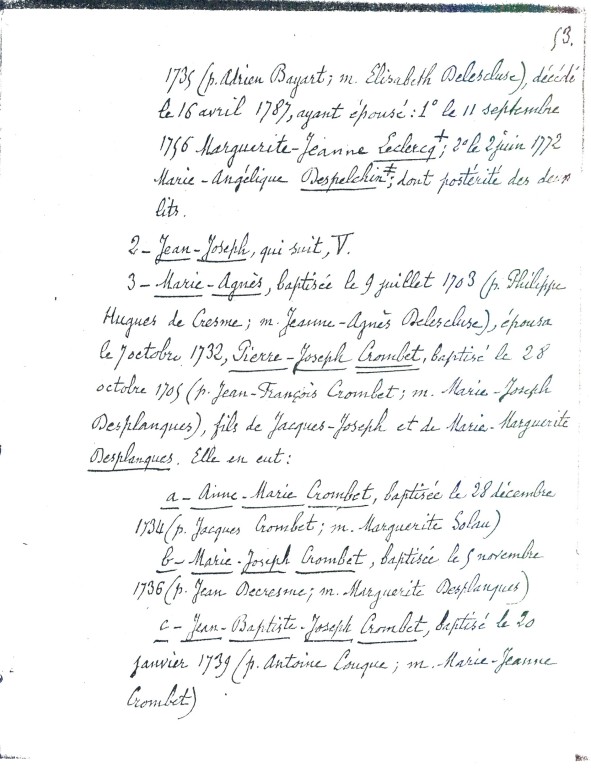 53.
1735 (p. Adrien Bayart; m. Elisabeth Delescluse), décédé
le 16 avril 1787, ayant épousé : 1° le 11 septembre
1756 Marguerite-Jeanne Leclercq+; 2° le 2 juin 1772
Marie-Angélique Despelchin‡; dont postérité des deux
lits.
2 - Jean-Joseph, qui suit, V.
3 - Marie-Agnès, baptisée le 9 juillet 1703 (p. Philippe
Hugues de Cresme; m. Jeanne-Agnès Delescluse), épousa
le 7 octobre 1732, Pierre-Joseph Crombet, baptisé le 28
octobre 1705 (p. Jean-François Crombet; m. Marie-Joseph
Desplanques), fils de Jacques-Joseph et de Marie-Marguerite
Desplanques. Elle en eut :
a - Anne-Marie Crombet, baptisée le 28 décembre
1734 (p. Jacques Crombet; m. Marguerite Solau)
b - Marie-Joseph Crombet, baptisée le 5 novembre
1736 (p. Jean Decresme; m. Marguerite Desplanques)
c - Jean-Baptiste-Joseph Crombet, baptisé le 20
janvier 1739 (p. Antoine Couque; m. Marie-Jeanne
Crombet)